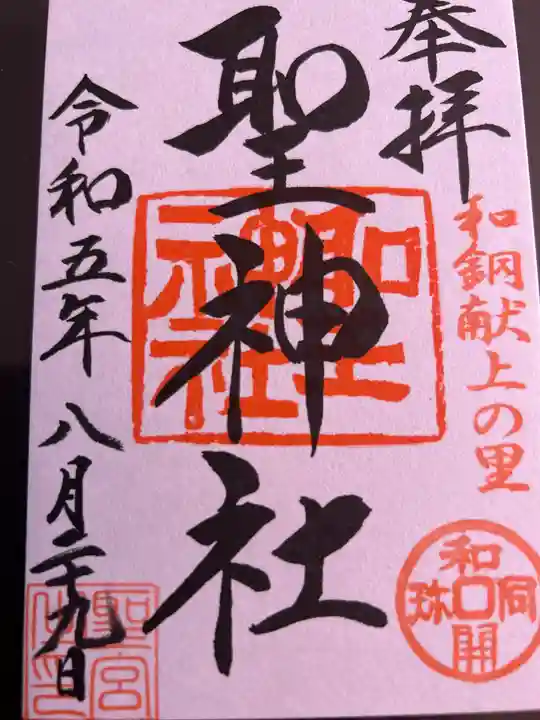 奉拝
和銅献上の里
和同開珎
聖神社
聖神社
令和五年八月二十九日
聖宮